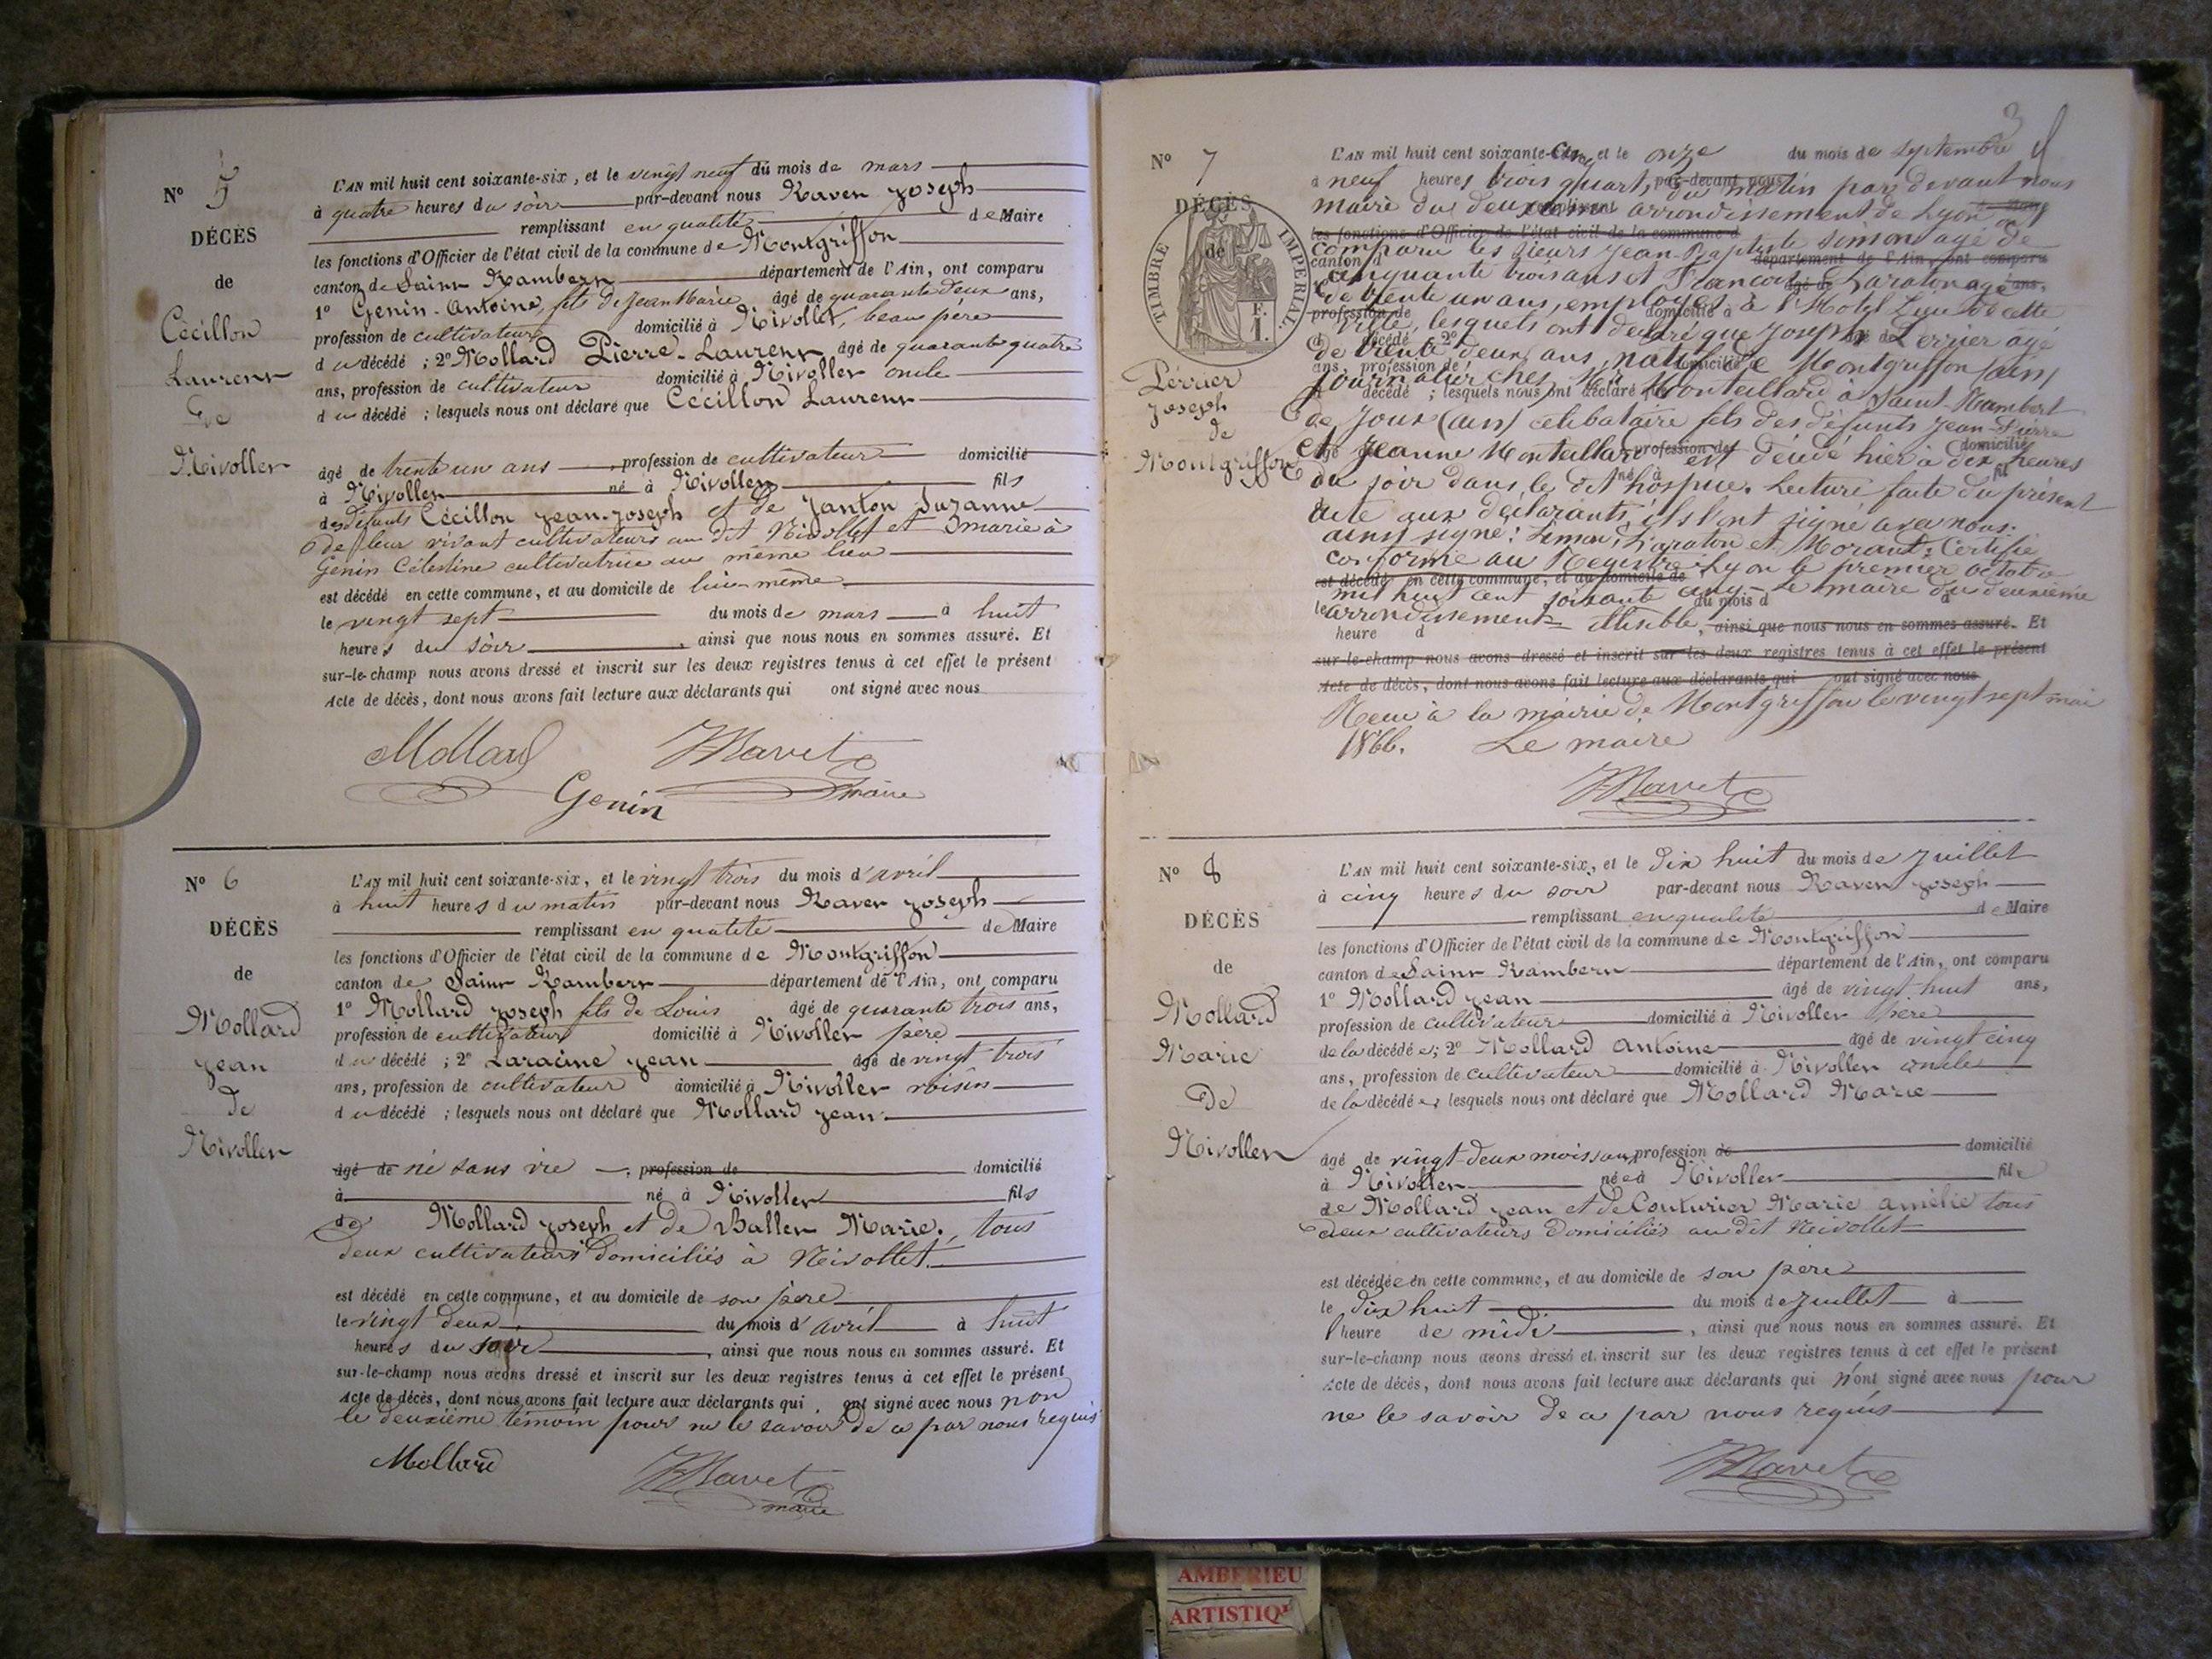 N° 5
DÉCÈS
de
Cécillon
Laurent
De
Nivollet
L'AN mil huit cent soixante-six, et le vingt neuf du mois de mars
à quatre heures du soir par-devant nous Ravet Joseph
remplissant en qualité de Maire
les fonctions d'Officier de l'état civil de la commune de Montgriffon
canton de Saint Rambert département de l'Ain, ont comparu
1° Genin Antoine, fils de Jean Marie âgé de quarante deux ans,
profession de cultivateur domicilié à Nivollet, beau père
du décédé ; 2° Mollard Pierre-Laurent âgé de quarante quatre
ans, profession de cultivateur domicilié à Nivollet oncle
du décédé ; lesquels nous ont déclaré que Cécillon Laurent
âgé de trente un ans, profession de cultivateur domicilié
à Nivollet né à Nivollet fils
des défunts Cécillon Jean-Joseph et de Janton Suzanne
de leur vivant cultivateurs au dit Nivollet et marié à
Genin Célestine cultivatrice au même lieu
est décédé en cette commune, et au domicile de lui-même
le vingt sept du mois de mars à huit
heures du soir, ainsi que nous nous en sommes assuré. Et
sur-le-champ nous avons dressé et inscrit sur les deux registres tenus à cet effet le présent
Acte de décès, dont nous avons fait lecture aux déclarants qui ont signé avec nous
Mollard Ravet
Genin maire
N° 6
DÉCÈS
de
Mollard
Jean
De
Nivollet
L'AN mil huit cent soixante-six, et le vingt trois du mois d'avril
à huit heures du matin par-devant nous Ravet Joseph
remplissant en qualité de Maire
les fonctions d'Officier de l'état civil de la commune de Montgriffon
canton de Saint Rambert département de l'Ain, ont comparu
1° Mollard Joseph fils de Louis âgé de quarante trois ans,
profession de cultivateur domicilié à Nivollet père
du décédé ; 2° Laracine Jean âgé de vingt trois
ans, profession de cultivateur domicilié à Nivollet voisin
du décédé ; lesquels nous ont déclaré que Mollard Jean
âgé de né sans vie, profession de domicilié
à né à Nivollet fils
de Mollard Joseph et de Ballet Marie, tous
deux cultivateurs domiciliés à Nivollet
est décédé en cette commune, et au domicile de son père
le vingt deux du mois d'avril à huit
heures du soir, ainsi que nous nous en sommes assuré. Et
sur-le-champ nous avons dressé et inscrit sur les deux registres tenus à cet effet le présent
Acte de décès, dont nous avons fait lecture aux déclarants qui ont signé avec nous non
le deuxième témoin pour ne le savoir de ce par nous requis
Mollard Ravet
maire
3
N° 7
DÉCÈS
de
TIMBRE IMPÉRIAL
Périer
Joseph
de
Montgriffon
L'AN mil huit cent soixante-cinq et le onze du mois de septembre
à neuf heures trois quart, du matin par devant nous
maire du deuxième arrondissement de Lyon
les fonctions d'Officier de l'état civil de la commune d
comparu les sieurs Jean-Baptiste Simon agé de
canton d département de l'Ain, ont comparu
cinquante trois ans et François Laraton agé
de trente un ans, employés à l'Hotel Dieu de cette
ville, lesquels ont déclaré que Joseph Perrier agé
de trente deux ans, natif de Montgriffon (ain)
journalier chez Montaillard à Saint Rambert
de Joux (ain) célibataire fils des défunts Jean-Pierre
et Jeanne Montaillard est décédé hier à dix heures
du soir dans le dit hospice. Lecture faite du présent
acte aux déclarants, ils l'ont signé avec nous.
ainsi signé: Simon, Laraton et Morant: Certifié
conforme au Registre Lyon le premier octobre
est décédé en cette commune, et au domicile de
mil huit cent soixante cinq - Le maire du deuxième
arrondissement illisible, ainsi que nous nous en sommes assuré. Et
heure d
sur-le-champ nous avons dressé et inscrit sur les deux registres tenus à cet effet le présent
Acte de décès, dont nous avons fait lecture aux déclarants qui ont signé avec nous
Reçu à la mairie de Montgriffon le vingt sept mai
1866. Le maire
Ravet
N° 8
DÉCÈS
de
Mollard
Marie
De
Nivollet
L'AN mil huit cent soixante-six, et le dix huit du mois de Juillet
à cinq heures du soir par-devant nous Ravet Joseph
remplissant en qualité de Maire
les fonctions d'Officier de l'état civil de la commune de Montgriffon
canton de Saint Rambert département de l'Ain, ont comparu
1° Mollard Jean âgé de vingt huit ans,
profession de cultivateur domicilié à Nivollet père
de la décédée ; 2° Mollard Antoine âgé de vingt cinq
ans, profession de cultivateur domicilié à Nivollet oncle
de la décédée, lesquels nous ont déclaré que Mollard Marie
âgé de vingt-deux mois sans profession de domicilié
à Nivollet née à Nivollet fille
de Mollard Jean et de Couturier Marie Amélie tous
deux cultivateurs domiciliés au dit Nivollet
est décédée en cette commune, et au domicile de son père
le dix huit du mois de Juillet à
l'heure de midi, ainsi que nous nous en sommes assuré. Et
sur-le-champ nous avons dressé et inscrit sur les deux registres tenus à cet effet le présent
Acte de décès, dont nous avons fait lecture aux déclarants qui n'ont signé avec nous pour
ne le savoir de ce par nous requis
Ravet
AMBERIEU
ARTISTIQUE